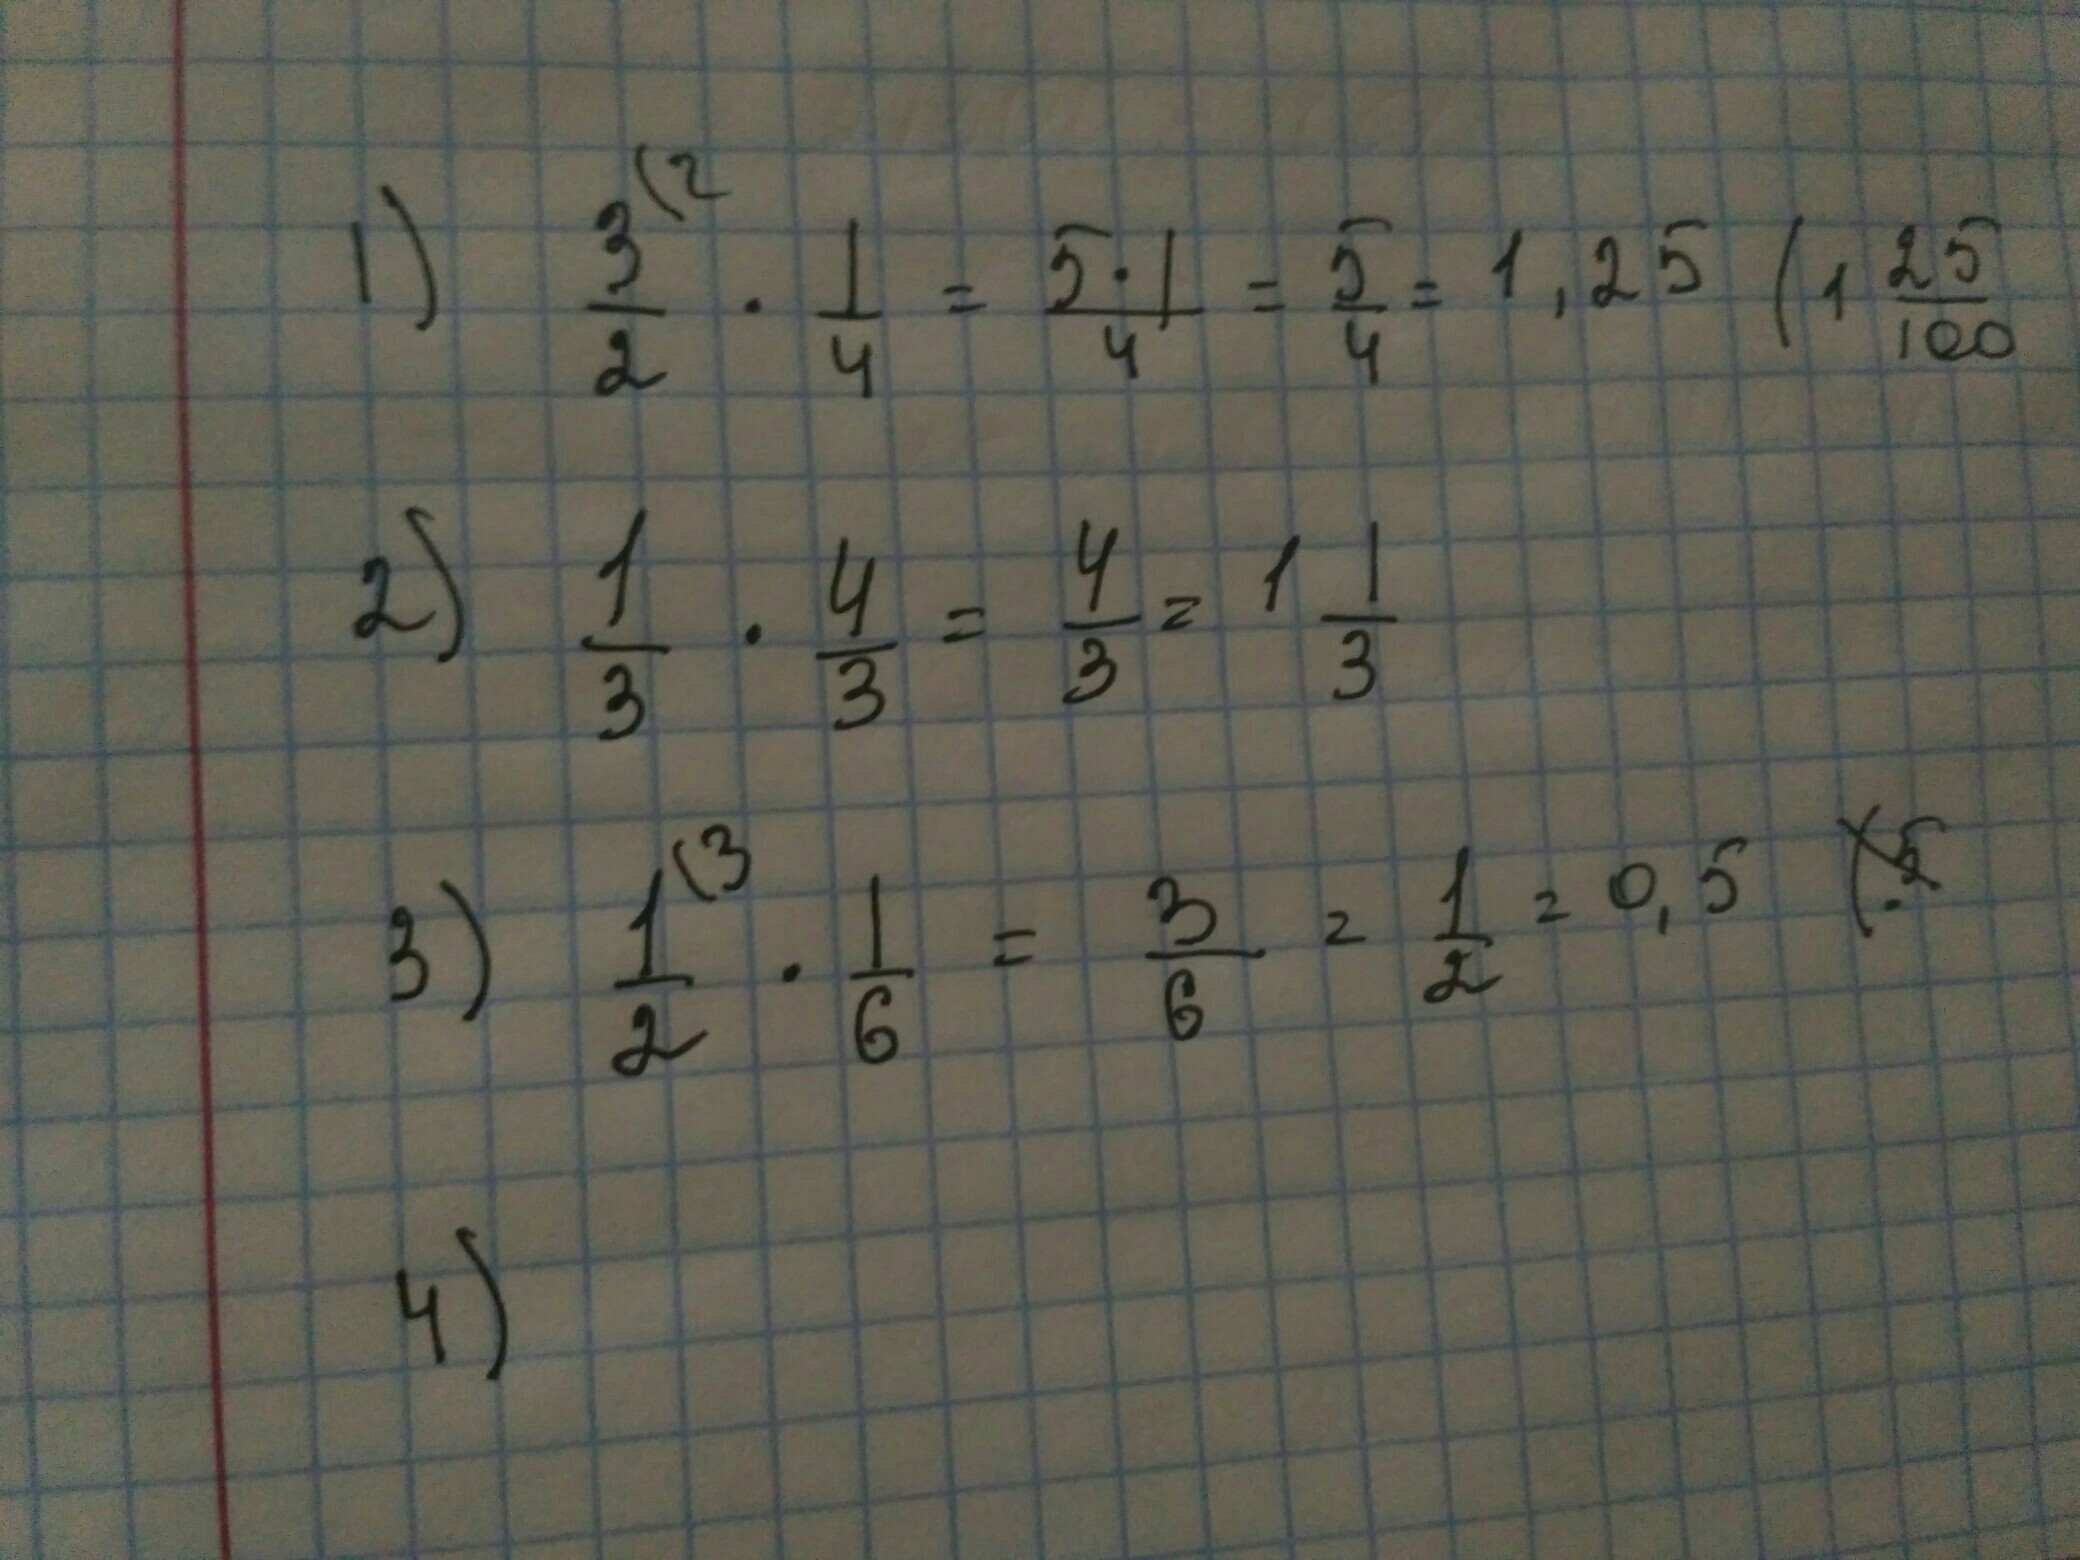 1) 3/2 (2 · 1/4 = 5·1/4 = 5/4 = 1,25 (1 25/100
2) 1/3 · 4/3 = 4/3 = 1 1/3
3) 1/2 (3 · 1/6 = 3/6 = 1/2 = 0,5
4)